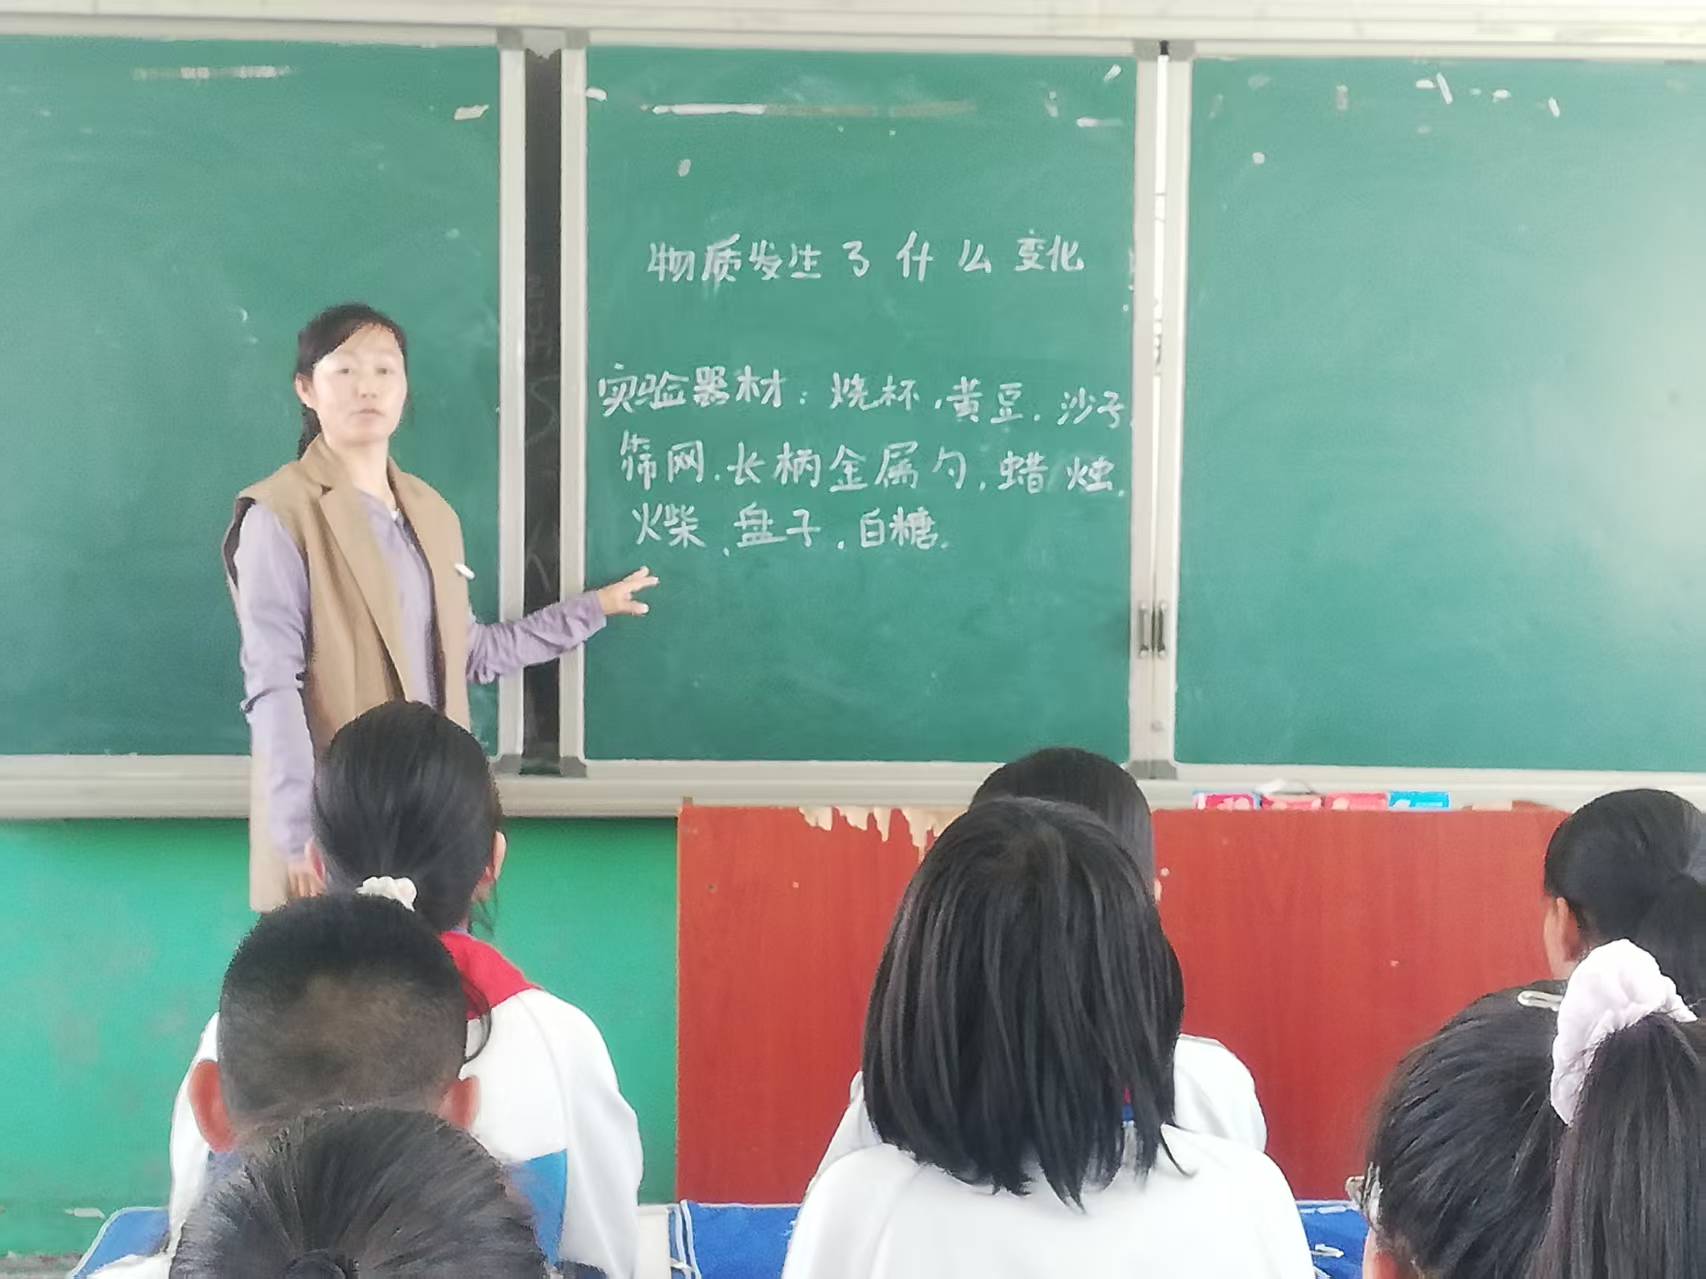 物质发生了什么变化
实验器材：烧杯，黄豆．沙子．
筛网．长柄金属勺．蜡烛．
火柴．盘子．白糖．